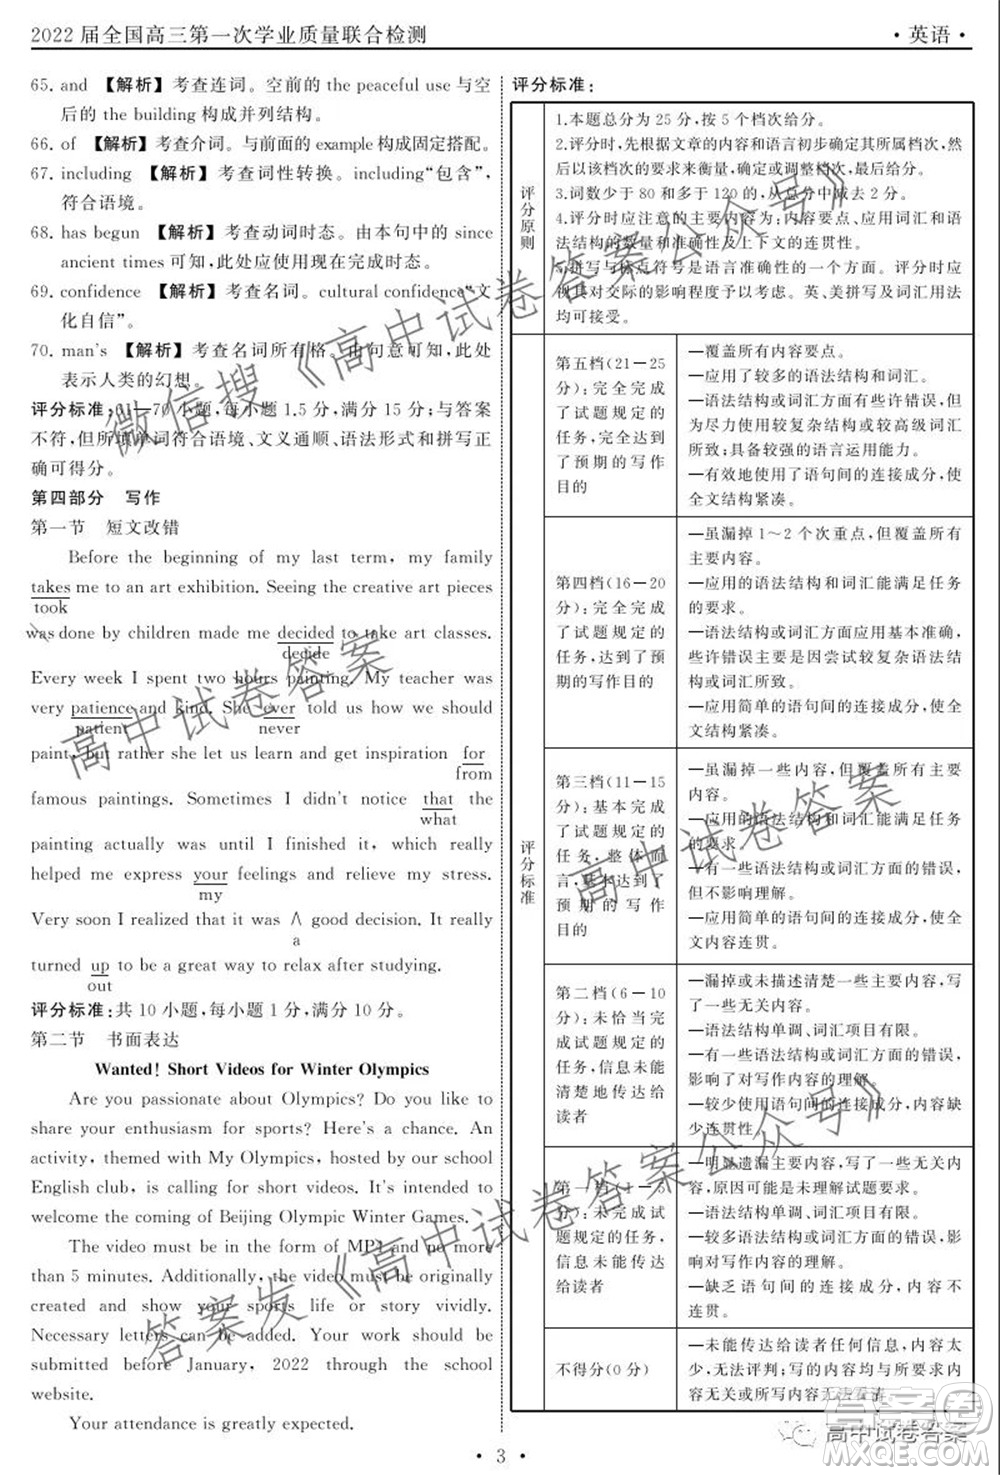 2022 届全国高三第一次学业质量联合检测
· 英语 ·
65. and 【解析】考查连词。空前的 the peaceful use 与空
后的 the building 构成并列结构。
66. of 【解析】考查介词。与前面的 example 构成固定搭配。
67. including 【解析】考查词性转换。including“包含”，
符合语境。
68. has begun 【解析】考查动词时态。由本句中的 since
ancient times 可知，此处应使用现在完成时态。
69. confidence 【解析】考查名词。cultural confidence“文
化自信”。
70. man's 【解析】考查名词所有格。由句意可知，此处
表示人类的幻想。
评分标准：61—70 小题，每小题 1.5 分，满分 15 分；与答案
不符，但所填单词符合语境、文义通顺、语法形式和拼写正
确可得分。
第四部分 写作
第一节 短文改错
Before the beginning of my last term, my family
takes me to an art exhibition. Seeing the creative art pieces
took
was done by children made me decided to take art classes.
decide
Every week I spent two hours painting. My teacher was
very patience and kind. She ever told us how we should
patient never
paint, but rather she let us learn and get inspiration for
from
famous paintings. Sometimes I didn't notice that the
what
painting actually was until I finished it, which really
helped me express your feelings and relieve my stress.
my
Very soon I realized that it was ∧ good decision. It really
a
turned up to be a great way to relax after studying.
out
评分标准：共 10 小题，每小题 1 分，满分 10 分。
第二节 书面表达
Wanted! Short Videos for Winter Olympics
Are you passionate about Olympics? Do you like to
share your enthusiasm for sports? Here's a chance. An
activity, themed with My Olympics, hosted by our school
English club, is calling for short videos. It's intended to
welcome the coming of Beijing Olympic Winter Games.
The video must be in the form of MP4 and no more
than 5 minutes. Additionally, the video must be originally
created and show your sports life or story vividly.
Necessary letters can be added. Your work should be
submitted before January, 2022 through the school
website.
Your attendance is greatly expected.
评分标准：
评分原则
1.本题总分为 25 分，按 5 个档次给分。
2.评分时，先根据文章的内容和语言初步确定其所属档次，
然后以该档次的要求来衡量，确定或调整档次，最后给分。
3.词数少于 80 和多于 120 的，从总分中减去 2 分。
4.评分时应注意的主要内容为：内容要点、应用词汇和语
法结构的数量和准确性及上下文的连贯性。
5.拼写与标点符号是语言准确性的一个方面。评分时应
视其对交际的影响程度予以考虑。英、美拼写及词汇用法
均可接受。
评分标准
第五档(21—25
分)：完全完成
了试题规定的
任务，完全达到
了预期的写作
目的
—覆盖所有内容要点。
—应用了较多的语法结构和词汇。
—语法结构或词汇方面有些许错误，但
为尽力使用较复杂结构或较高级词汇
所致；具备较强的语言运用能力。
—有效地使用了语句间的连接成分，使
全文结构紧凑。
第四档(16—20
分)：完全完成
了试题规定的
任务，达到了预
期的写作目的
—虽漏掉 1～2 个次重点，但覆盖所有
主要内容。
—应用的语法结构和词汇能满足任务
的要求。
—语法结构或词汇方面应用基本准确，
些许错误主要是因尝试较复杂语法结
构或词汇所致。
—应用简单的语句间的连接成分，使全
文结构紧凑。
第三档(11—15
分)：基本完成
了试题规定的
任务，整体而
言，基本达到了
预期的写作
目的
—虽漏掉一些内容，但覆盖所有主要
内容。
—应用的语法结构和词汇能满足任务
的要求。
—有一些语法结构或词汇方面的错误，
但不影响理解。
—应用简单的语句间的连接成分，使全
文内容连贯。
第二档(6—10
分)：未恰当完
成试题规定的
任务，信息未能
清楚地传达给
读者
—漏掉或未描述清楚一些主要内容，写
了一些无关内容。
—语法结构单调、词汇项目有限。
—有一些语法结构或词汇方面的错误，
影响了对写作内容的理解。
—较少使用语句间的连接成分，内容缺
少连贯性。
第一档(1—5
分)：未完成试
题规定的任务，
信息未能传达
给读者
—明显遗漏主要内容，写了一些无关内
容，原因可能是未理解试题要求。
—语法结构单调、词汇项目有限。
—较多语法结构或词汇方面的错误，影
响对写作内容的理解。
—缺乏语句间的连接成分，内容不
连贯。
不得分(0 分)
—未能传达给读者任何信息，内容太
少，无法评判；写的内容均与所要求的
内容无关或所写内容无法看清。
· 3 ·
微信搜《高中试卷答案公众号》
高中试卷答案
高中试卷答案
答案发《高中试卷答案公众号》
高中试卷答案
答案圈
MXQE.COM